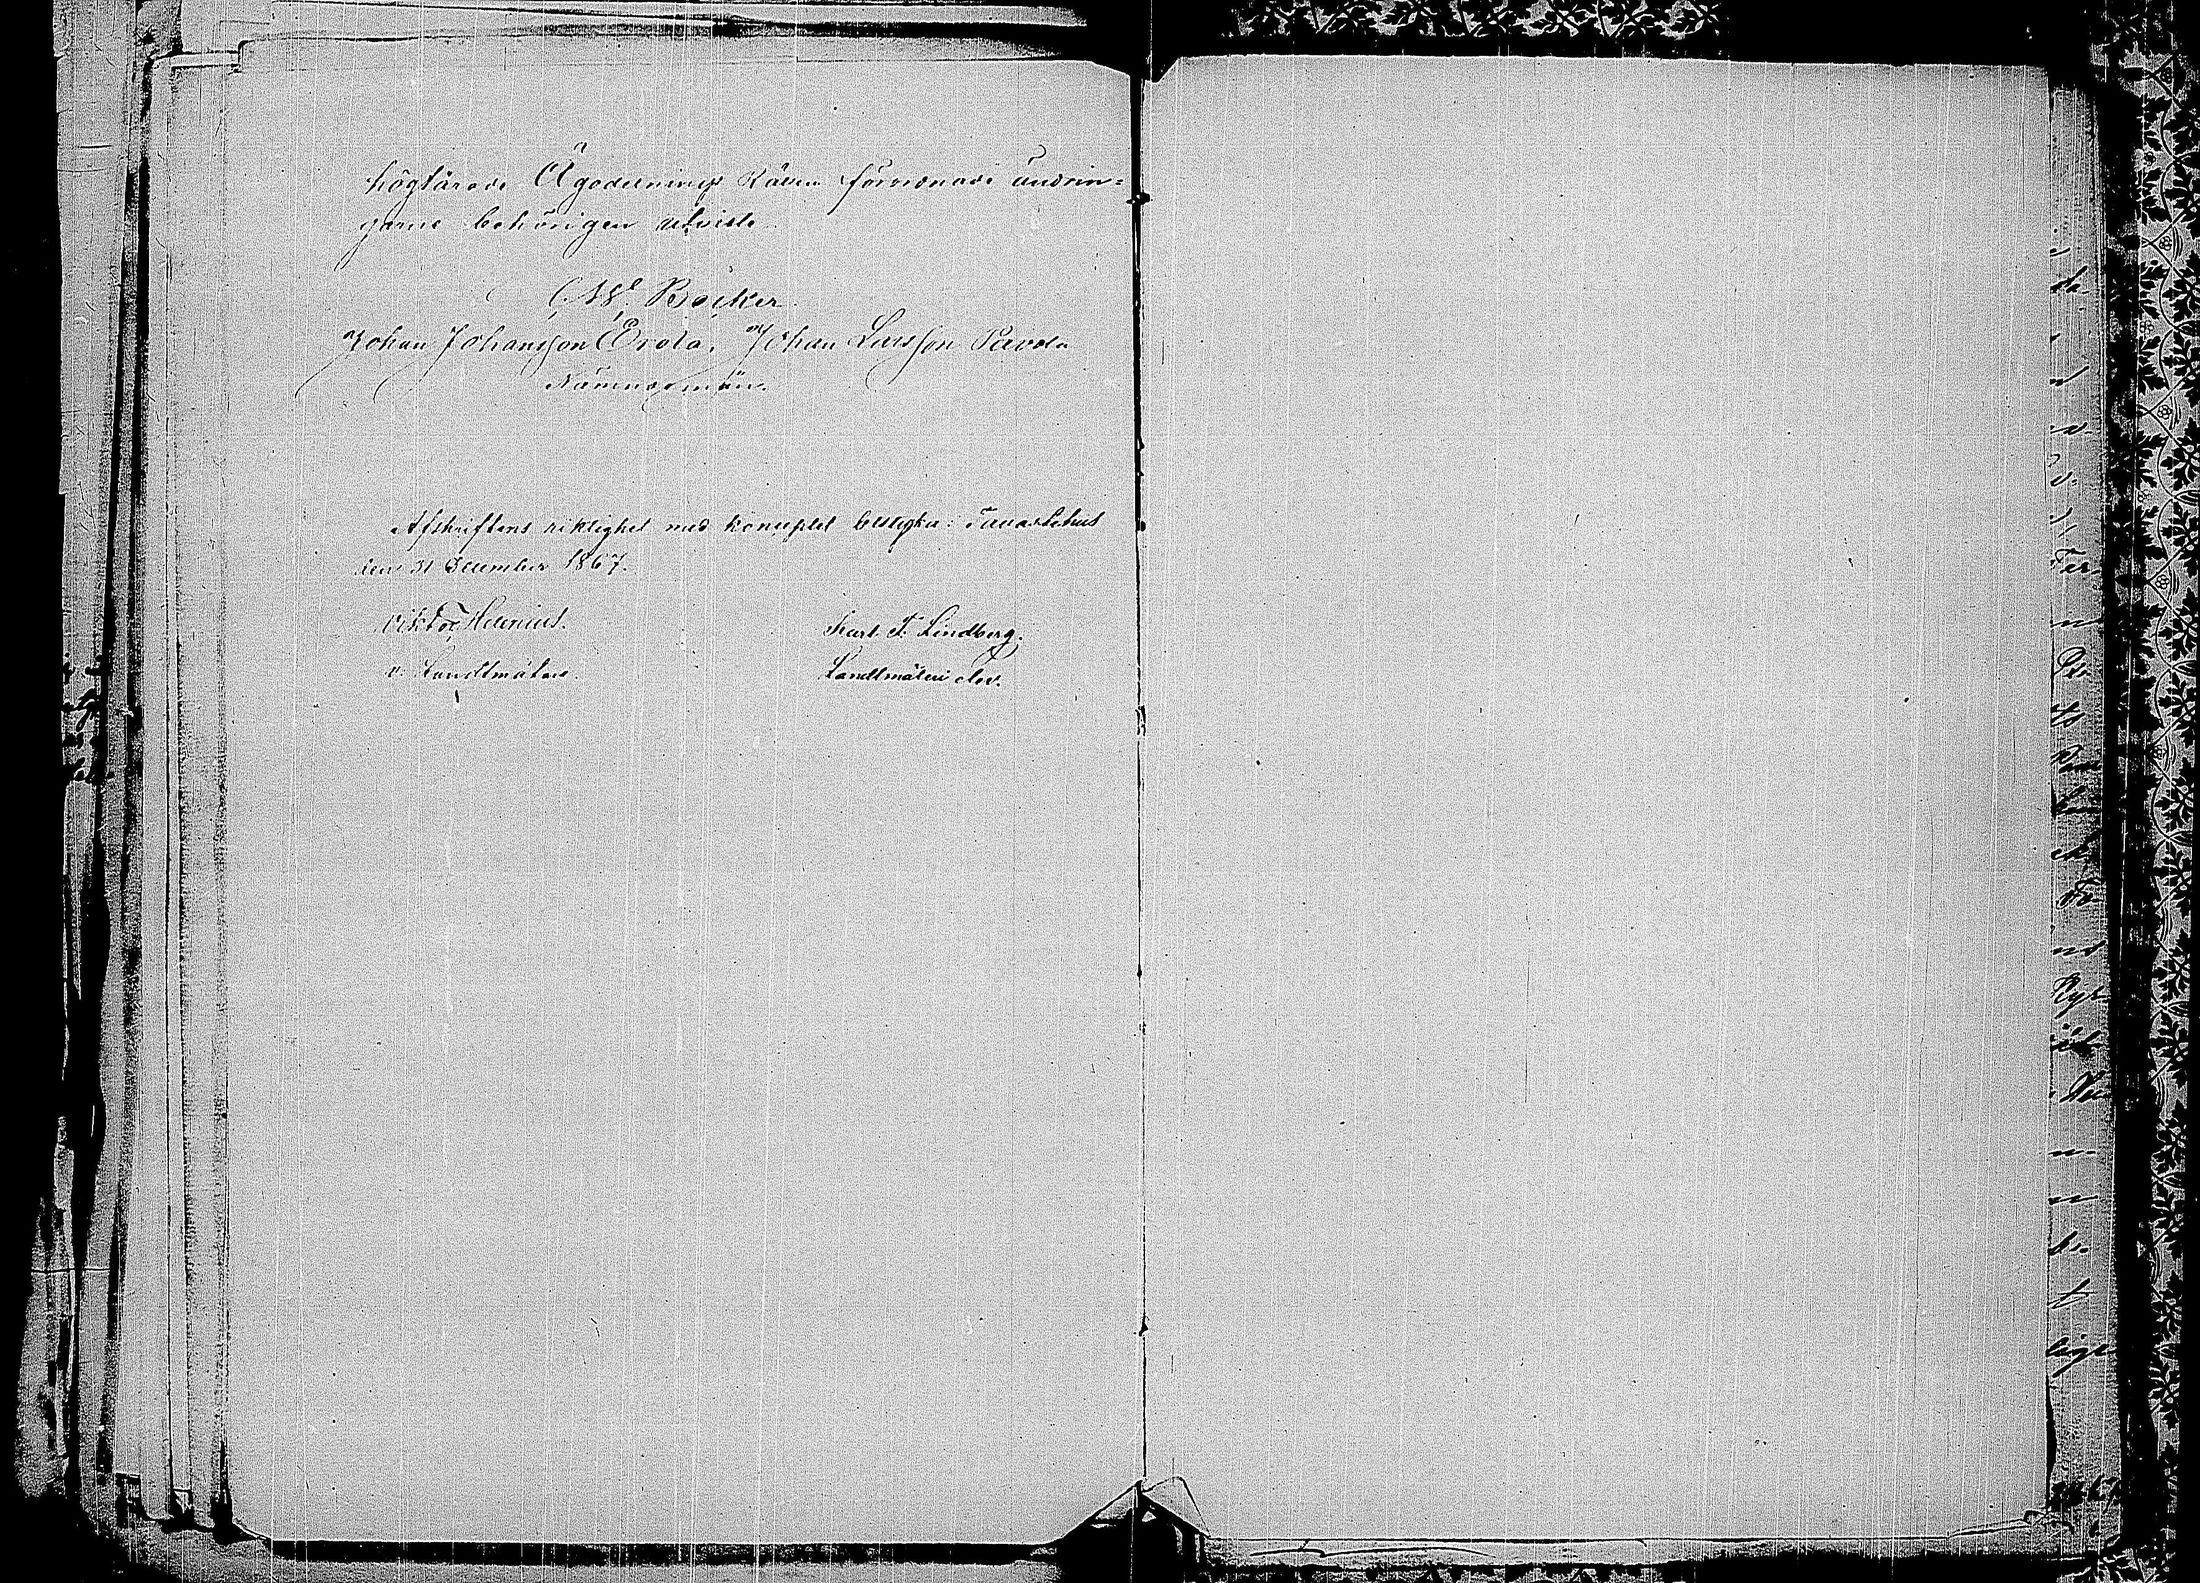 högtärade Ägodelnings Rätten förordnade ändrin=
garne behörigen utviste.
C. W. Böcker.
Johan Johansson Erola, Johan Larsson Pavola
Nämndemän.
Afskriftens riktighet med konceptet bestyrka: Tavastehus
den 31 December 1867.
Viktor Helenius.
v. Landtmätare.
Karl F. Lindberg.
Landtmäteri elev.